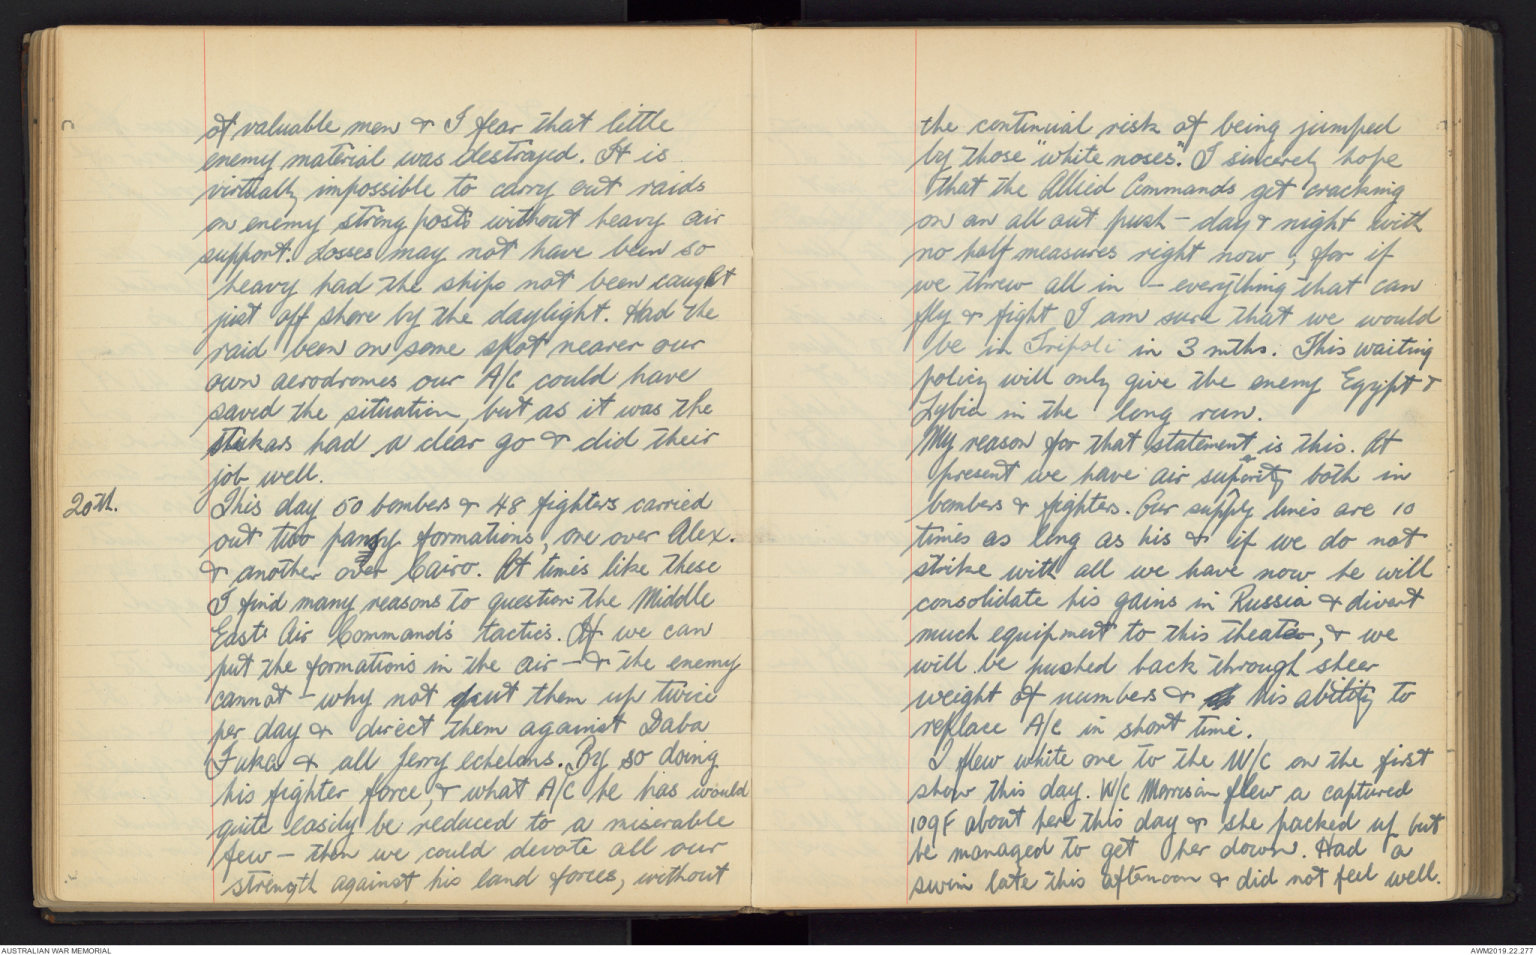 of valuable men & I fear that little
enemy material was destroyed. It is
virtually impossible to carry out raids
on enemy strong posts without heavy air
support. Losses may not have been so
heavy had the ships not been caught
just off shore by the daylight. Had the
raid been on some spot nearer our
own aerodromes our A/C could have
saved the situation, but as it was the
stukas had a clear go & did their
job well.
20th. This day 50 bombers & 48 fighters carried
out two pansy formations, one over Alex.
& another over Cairo. At times like these
I find many reasons to question the Middle
East Air Command's tactics. If we can
put the formations in the air - & the enemy
cannot - why not put them up twice
per day & direct them against Daba
Fuka & all Jerry echelons. By so doing
his fighter force, & what A/C he has would
quite easily be reduced to a miserable
few - then we could devote all our
strength against his land forces, without
the continual risk of being jumped
by those "white noses". I sincerely hope
that the Allied Commands get cracking
on an all out push - day & night with
no half measures right now, for if
we threw all in - everything that can
fly & fight I am sure that we would
be in Tripoli in 3 mths. This waiting
policy will only give the enemy Egypt &
Lybia in the long run.
My reason for that statement is this. At
present we have air supority both in
bombers & fighters. Our supply lines are 10
times as long as his & if we do not
strike with all we have now he will
consolidate his gains in Russia & divert
much equipment to this theatre, & we
will be pushed back through sheer
weight of numbers & his ability to
replace A/C in short time.
I flew white one to the W/C on the first
show this day. W/C Morrison flew a captured
109F about here this day & she packed up but
he managed to get her down. Had a
swim late this afternoon & did not feel well.
AUSTRALIAN WAR MEMORIAL
AWM2019.22.277